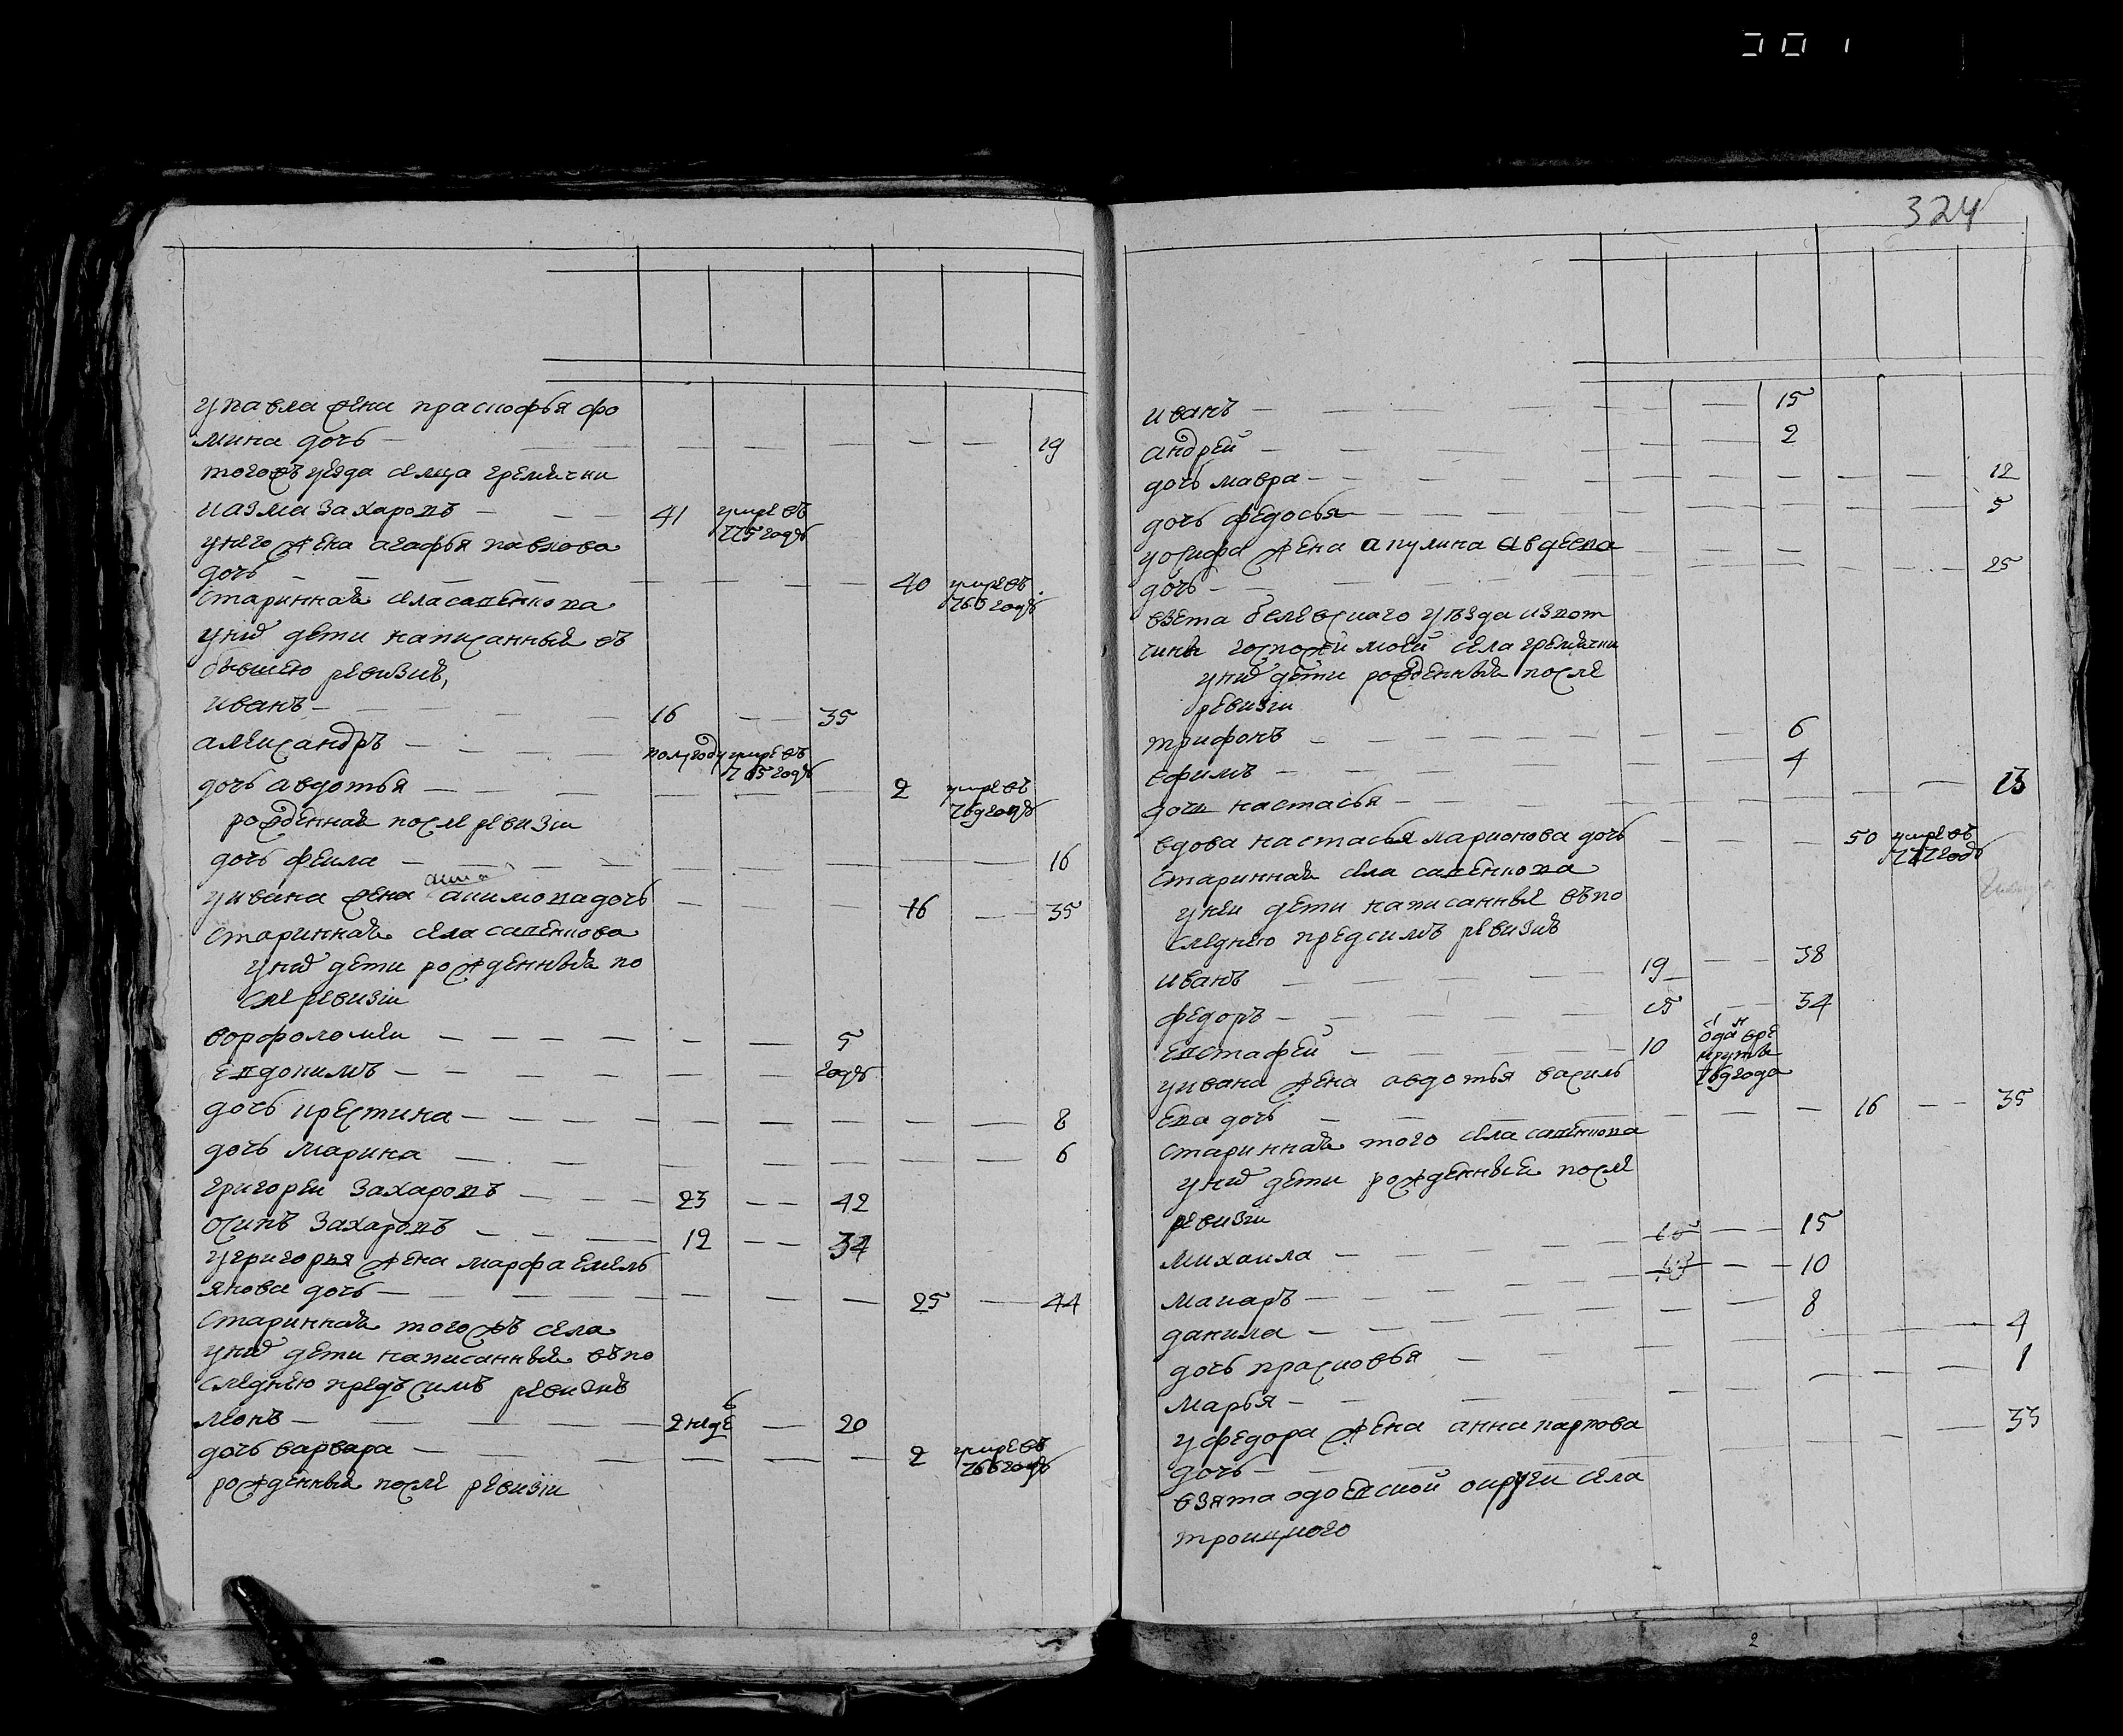 324
у павла жени прасковья фо
мина дочь — 19
тогожъ уезда селца гремячки
казма захаровъ — 41 умре въ 775 годѣ
у него жена агафья павлова
дочь — 40 умре въ 766 годѣ
стариннаѧ села сапенкова
у нихъ дети написанныѧ въ
бывшею ревизиѣ,
иванъ — 16 — 35
александръ — полугоду умре въ 765 годѣ
дочь авдотья — 2 умре въ 769 годѣ
рожденнаѧ после ревизiи
дочь фекла — 16
у ивана жена акимова дочь — 16 — 35
стариннаѧ села сапенкова
у нихъ дети рожденныѧ по
сле ревизiи
ворфоломеи — 5
евдокимъ — годъ
дочь крестина — 8
дочь марина — 6
григореи захаровъ — 23 — 42
осипъ захаровъ — 12 — 34
у григорья жена марфа емель
янова дочь — 25 — 44
стариннаѧ тогожъ села
у нихъ дети написанныѧ въ по
следнею предъ симъ ревизиѣ
леонъ — 2 неде — 20
дочь варвара — 2 умре въ 766 годѣ
рожденныѧ после ревизiи
иванъ — 15
андрей — 2
дочь мавра — 12
дочь федосья — 5
у осифа жена акулина авдеева
дочь — 25
взета белевскаго уѣзда из вот
чины госпожи моей села гремячки
у нихъ дети рожденныѧ после
ревизiи
трифонъ — 6
ефимъ — 4
дочь настасья — 13
вдова настасья ларионова дочь — 50 умре въ 777 годѣ
стариннаѧ села сапенкова
у ней дети написанные въ по
следнею пред симъ ревизиѣ
иванъ — 19 — 38
федоръ — 15 — 34
евстафей — 10 одан в рекруты 769 года
у ивана жена авдотья василь
ева дочь — 16 — 35
стариннаѧ того села сапенкова
у нихъ дети рожденныѧ после
ревизiи
михаила — 15
макаръ — 10
данила — 8
дочь прасковья — 4
марья — 1
у федора жена анна карпова
дочь — 33
взята одоевской округи села
троицкого